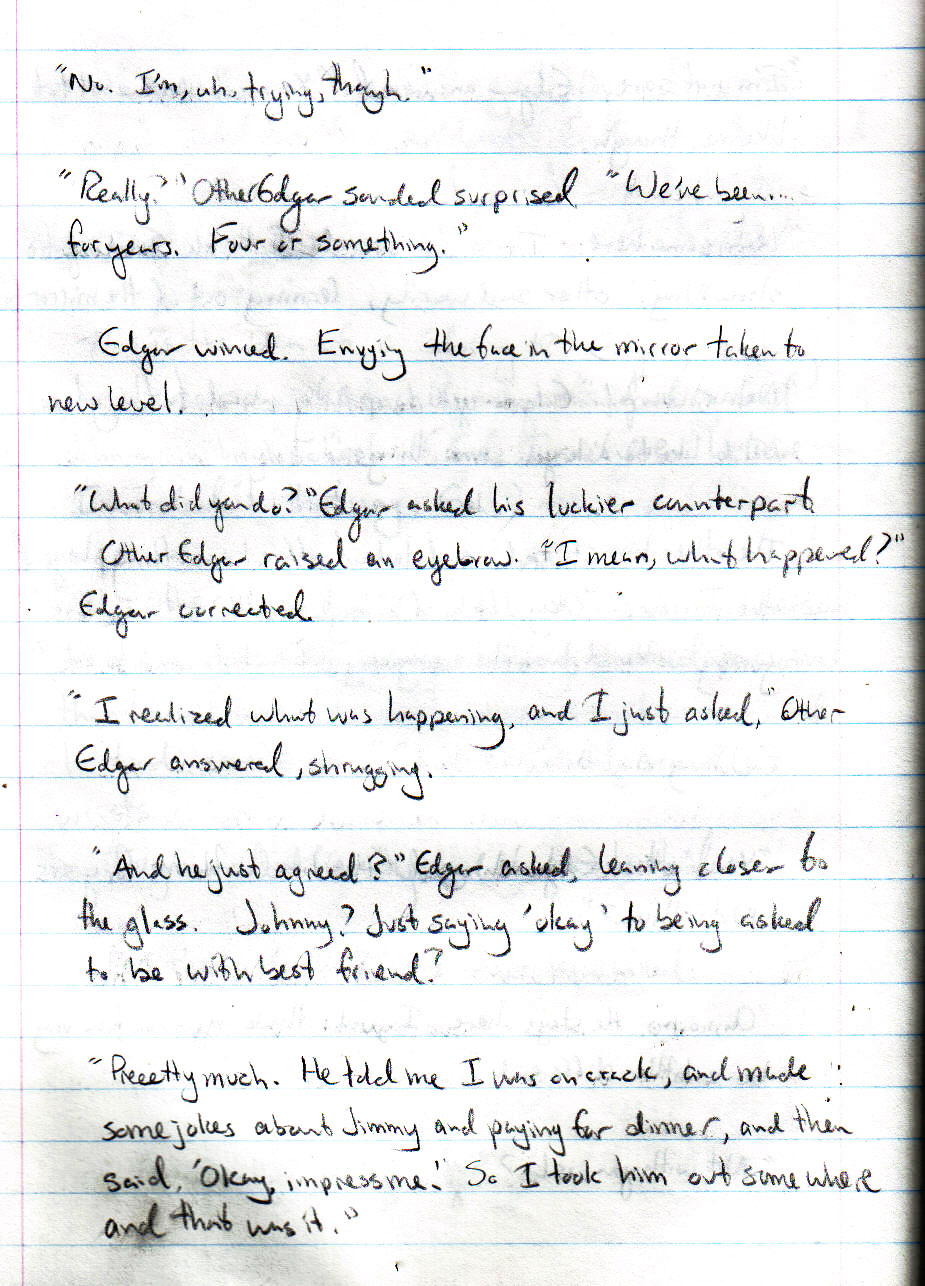 "No. I'm, uh, trying, though."
"Really?" OtherEdgar sounded surprised "We've been...
for years. Four or something."
Edgar winced. Envyiy the face in the mirror taken to
new level.
"What did you do?" Edgar asked his luckier counterpart.
Other Edgar raised an eyebrow. "I mean, what happened?"
Edgar corrected.
"I realized what was happening, and I just asked," Other
Edgar answered, shrugging.
"And he just agreed?" Edgar asked, leaning closer to
the glass. Johnny? Just saying 'okay' to being asked
to be with best friend?
"Preeetty much. He told me I was on crack, and made
some jokes about Jimmy and paying for dinner, and then
said, 'Okay, impress me.' So I took him out somewhere
and that was it."